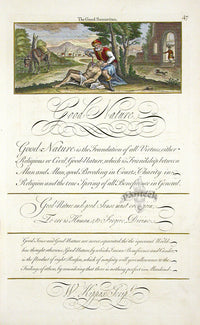 The Good Samaritan. 47
Good Nature.
Good Nature is the Foundation of all Virtues, either
Religious or Civil, Good-Nature, which is Friendship between
Man and Man, good Breeding in Courts, Charity in
Religion and the true Spring of all Beneficence in General.
Good Nature and good Sense must ever join,
To err is Human, to Forgive, Divine.
Good Sense and Good-Nature are never separated, tho' the ignorant World
has thought otherwise. Good Nature, by which I mean Beneficence and Candor,
is the Product of right Reason, which of necessity will give allowance to the
Failings of others, by considering that there is nothing perfect in Mankind.